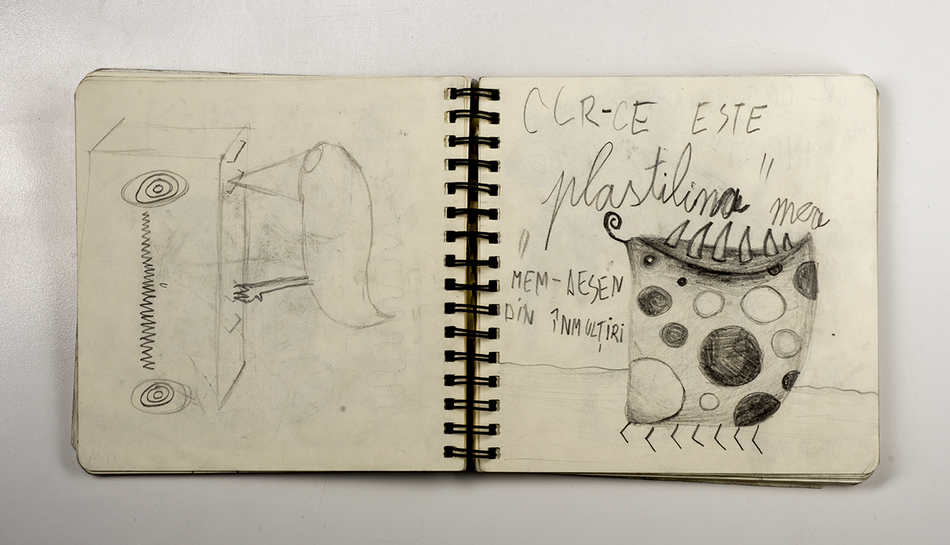 CLR-CE ESTE
plastilina" mea
" MEM-DESEN
DIN ÎNMULȚIRI